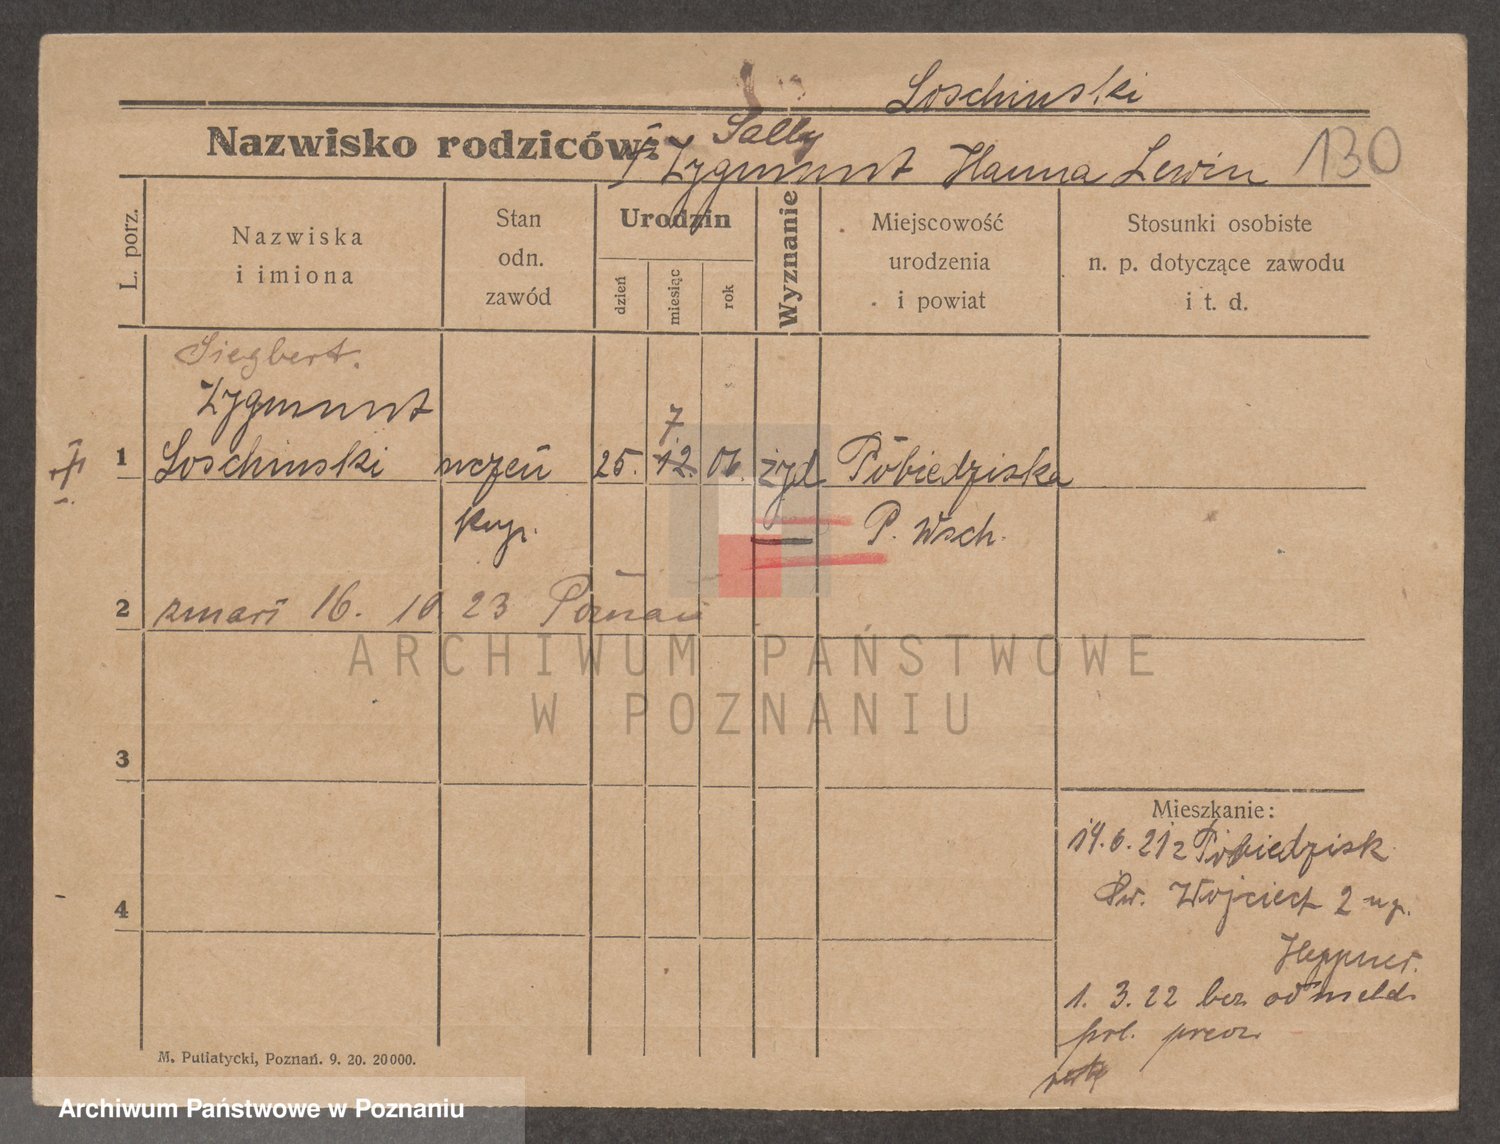 Loschinski
Nazwisko rodziców: Sally
† Zygmunt Hanna Lewin 130
L. porz.
Nazwiska
i imiona
Stan
odn.
zawód
Urodzin
dzień
miesiąc
rok
Wyznanie
Miejscowość
urodzenia
i powiat
Stosunki osobiste
n. p. dotyczące zawodu
i t. d.
Siegbert.
Zygmunt
7.
1 Loschinski uczeń 25. 12. 06. żyd Pobiedziska
kup. P. Wsch.
2 zmarł 16. 10 23 Poznań
3
4
Mieszkanie:
14.6.21 z Pobiedzisk
Św. Wojciech 2 u p.
Heppner.
1. 3. 22 bez odmeld.
M. Putiatycki, Poznań. 9. 20. 20000.
ARCHIWUM PAŃSTWOWE
W POZNANIU
Archiwum Państwowe w Poznaniu